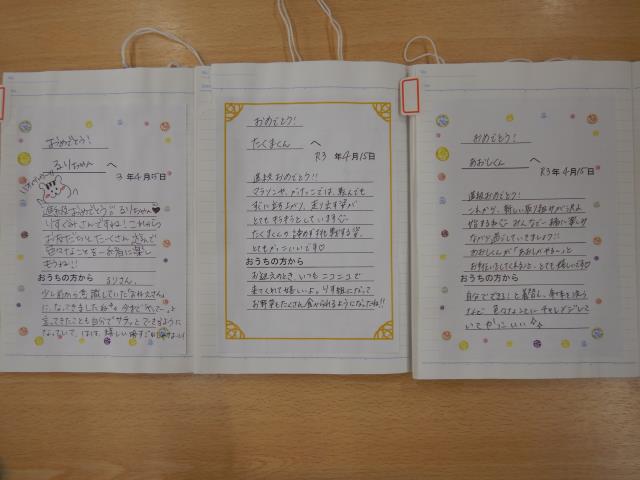 おめでとう!
るりちゃん へ
3 年 4 月 15 日
進級おめでとう!! るりちゃん♥
りすぐみさんですね! これから
お友だちとたくさん遊んで
色々なことを一緒に楽し
もうね!!
おうちの方から
るりさん、
少し前から意識していた「おねえさん」
になってきましたね。今まで「やってー」と
言ってきたことも自分でサッとできるように
なっていて、ははは嬉しい
おめでとう!
たくまくん へ
R3 年 4 月 15 日
進級おめでとう!!
マラソンや、かけっこでは、転んでも
すぐに立ち上がり、走り出す姿が
とてもキラキラとしています
たくまくんの諦めず挑戦する姿、
とてもかっこいいです♡
おうちの方から
お迎えのとき、いつもニコニコで
来てくれて嬉しいよ。りす組になって
お野菜もたくさん食べられるようになったね!!
おめでとう!
あおしくん へ
R3 年 4 月 15 日
進級おめでとう!
これから、新しい取り組みがいっぱい
始まるね みんなで一緒に楽しみ
ながら過ごしていきましょう!!
あおしくんが「あおしがやるー」と
お手伝いをしてくれること、とても嬉しいです♡
おうちの方から
自分でできる!と着替え、お箸を使う
など 色々なことに チャレンジして
いて かっこいい